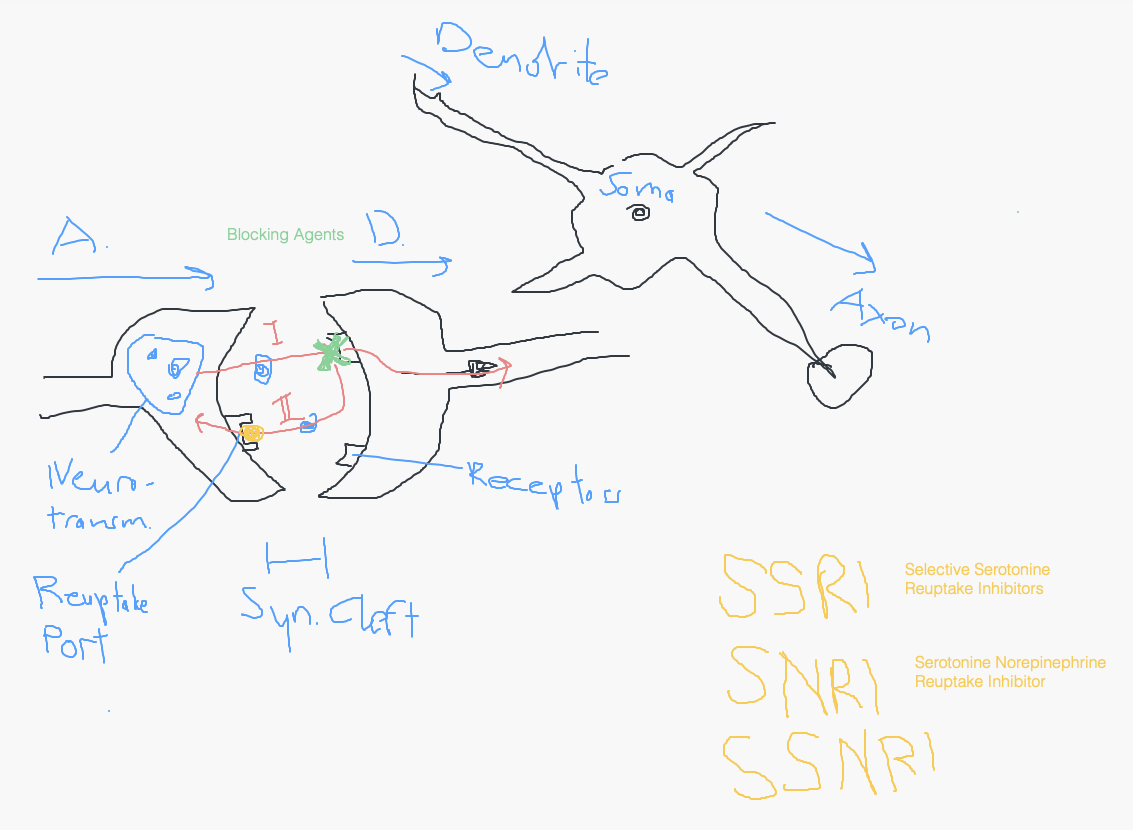 Dendrite
Soma
A.
Blocking Agents
D.
Axon
I
II
Neuro-
transm.
Receptors
Reuptake
Port
Syn. Cleft
SSRI
Selective Serotonine
Reuptake Inhibitors
SNRI
Serotonine Norepinephrine
Reuptake Inhibitor
SSNRI